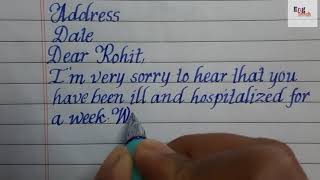 Address
Date
Dear Rohit,
I'm very sorry to hear that you
have been ill and hospitalized for
a week. W
Eng